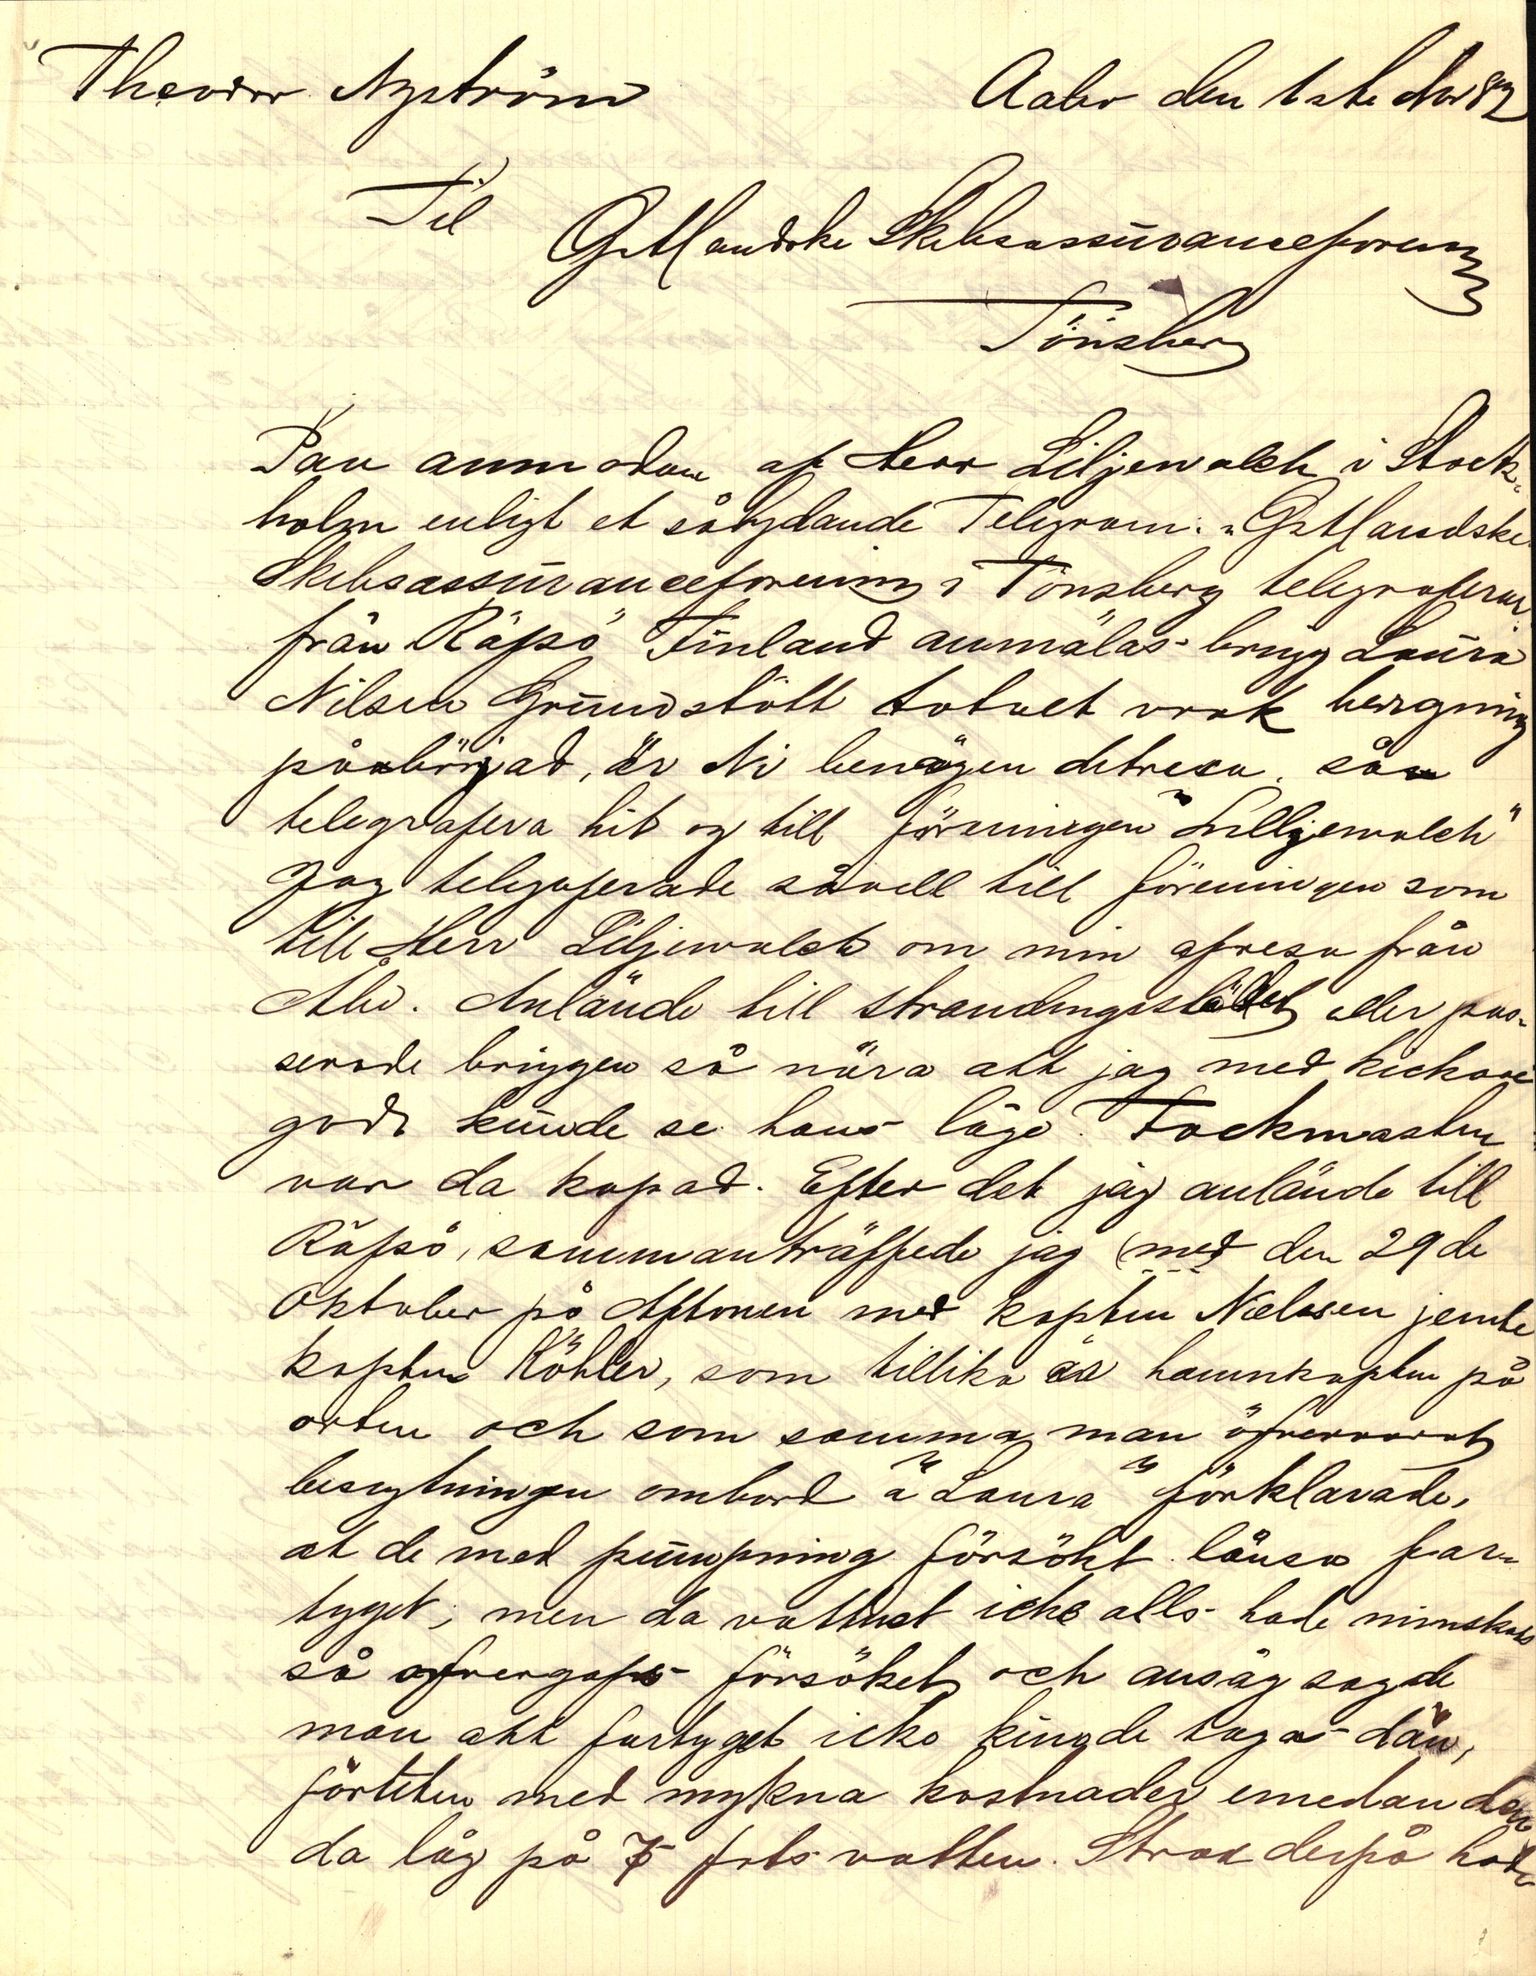 Theodor Nyström Aabo den 1ste Nov 82
Til
Østlandske Skibsassuranceforening
Tönsberg
Paa anmodan af Herr Liljewalch i Stock-
holm enligt et sålydande Telegram: "Østlandske
Skibsassuranceforening i Tönsberg telegraferar
från Räfsö Finland anmälas brigg Laura
Nilsen Grundstött totalt vrak bergning
påabörjad, är Ni benägen ditresa, såa
telegrafera hit og till föreningen "Lilljewalch"
Jag telegraferade såvell till föreningen som
till Herr Liljewalch om min afresa från
Åbo. Anlände till strandingsstället eller pas-
serade briggen så nära att jag med kickare
godt kunde se hans läge. Fockmasten
var da kapad. Efter det jag anlände till
Räfsö, sammanträffede jag (med den 29de
Oktober på Aftonen med kapten Nielsen jemte
kapten Köhler, som tillika är hamnkapten på
orten och som samma man öfvervarat
besigtningen ombord å "Laura" förklarade,
at de med pumpning försökt länsa far-
tyget, men da vattnet icke alls hade minskats
så öfvergafs försöket och ansåg sagde
man att fartyget icke kunde tagas dän,
förutan med mykna kostnader emedan den
da låg på 7 fots vatten. Strax derpå hade